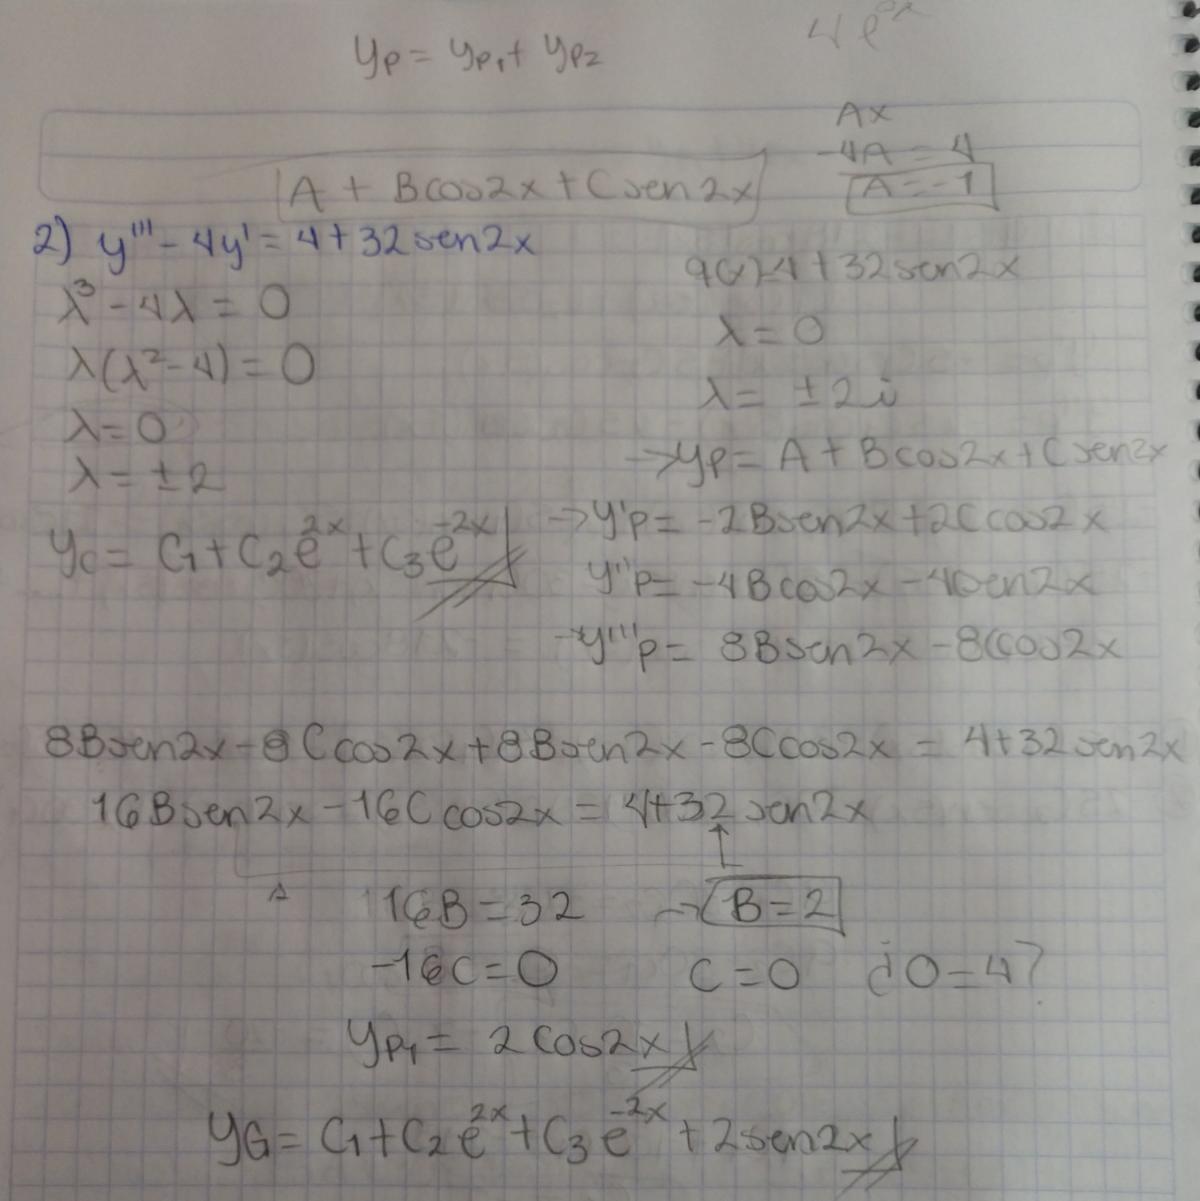 4e^0x
yp = yp₁ + yp₂
Ax
-4A = 4
A = -1
A + Bcos2x + Csen2x
2) y''' - 4y' = 4 + 32sen2x
λ³ - 4λ = 0
λ(λ² - 4) = 0
λ = 0
λ = ±2
yc = C₁ + C₂e^2x + C₃e^-2x
g(x)=4 + 32sen2x
λ = 0
λ = ±2i
→ yp = A + Bcos2x + Csen2x
→ y'p = -2Bsen2x + 2Ccos2x
y''p = -4Bcos2x - 4Csen2x
→ y'''p = 8Bsen2x - 8Ccos2x
8Bsen2x - 8Ccos2x + 8Bsen2x - 8Ccos2x = 4+32sen2x
16Bsen2x - 16Ccos2x = 4+32sen2x
16B = 32 → B = 2
-16C = 0 C = 0 ¿0 = 4?
yp₁ = 2cos2x
yG = C₁ + C₂e^2x + C₃e^-2x + 2sen2x